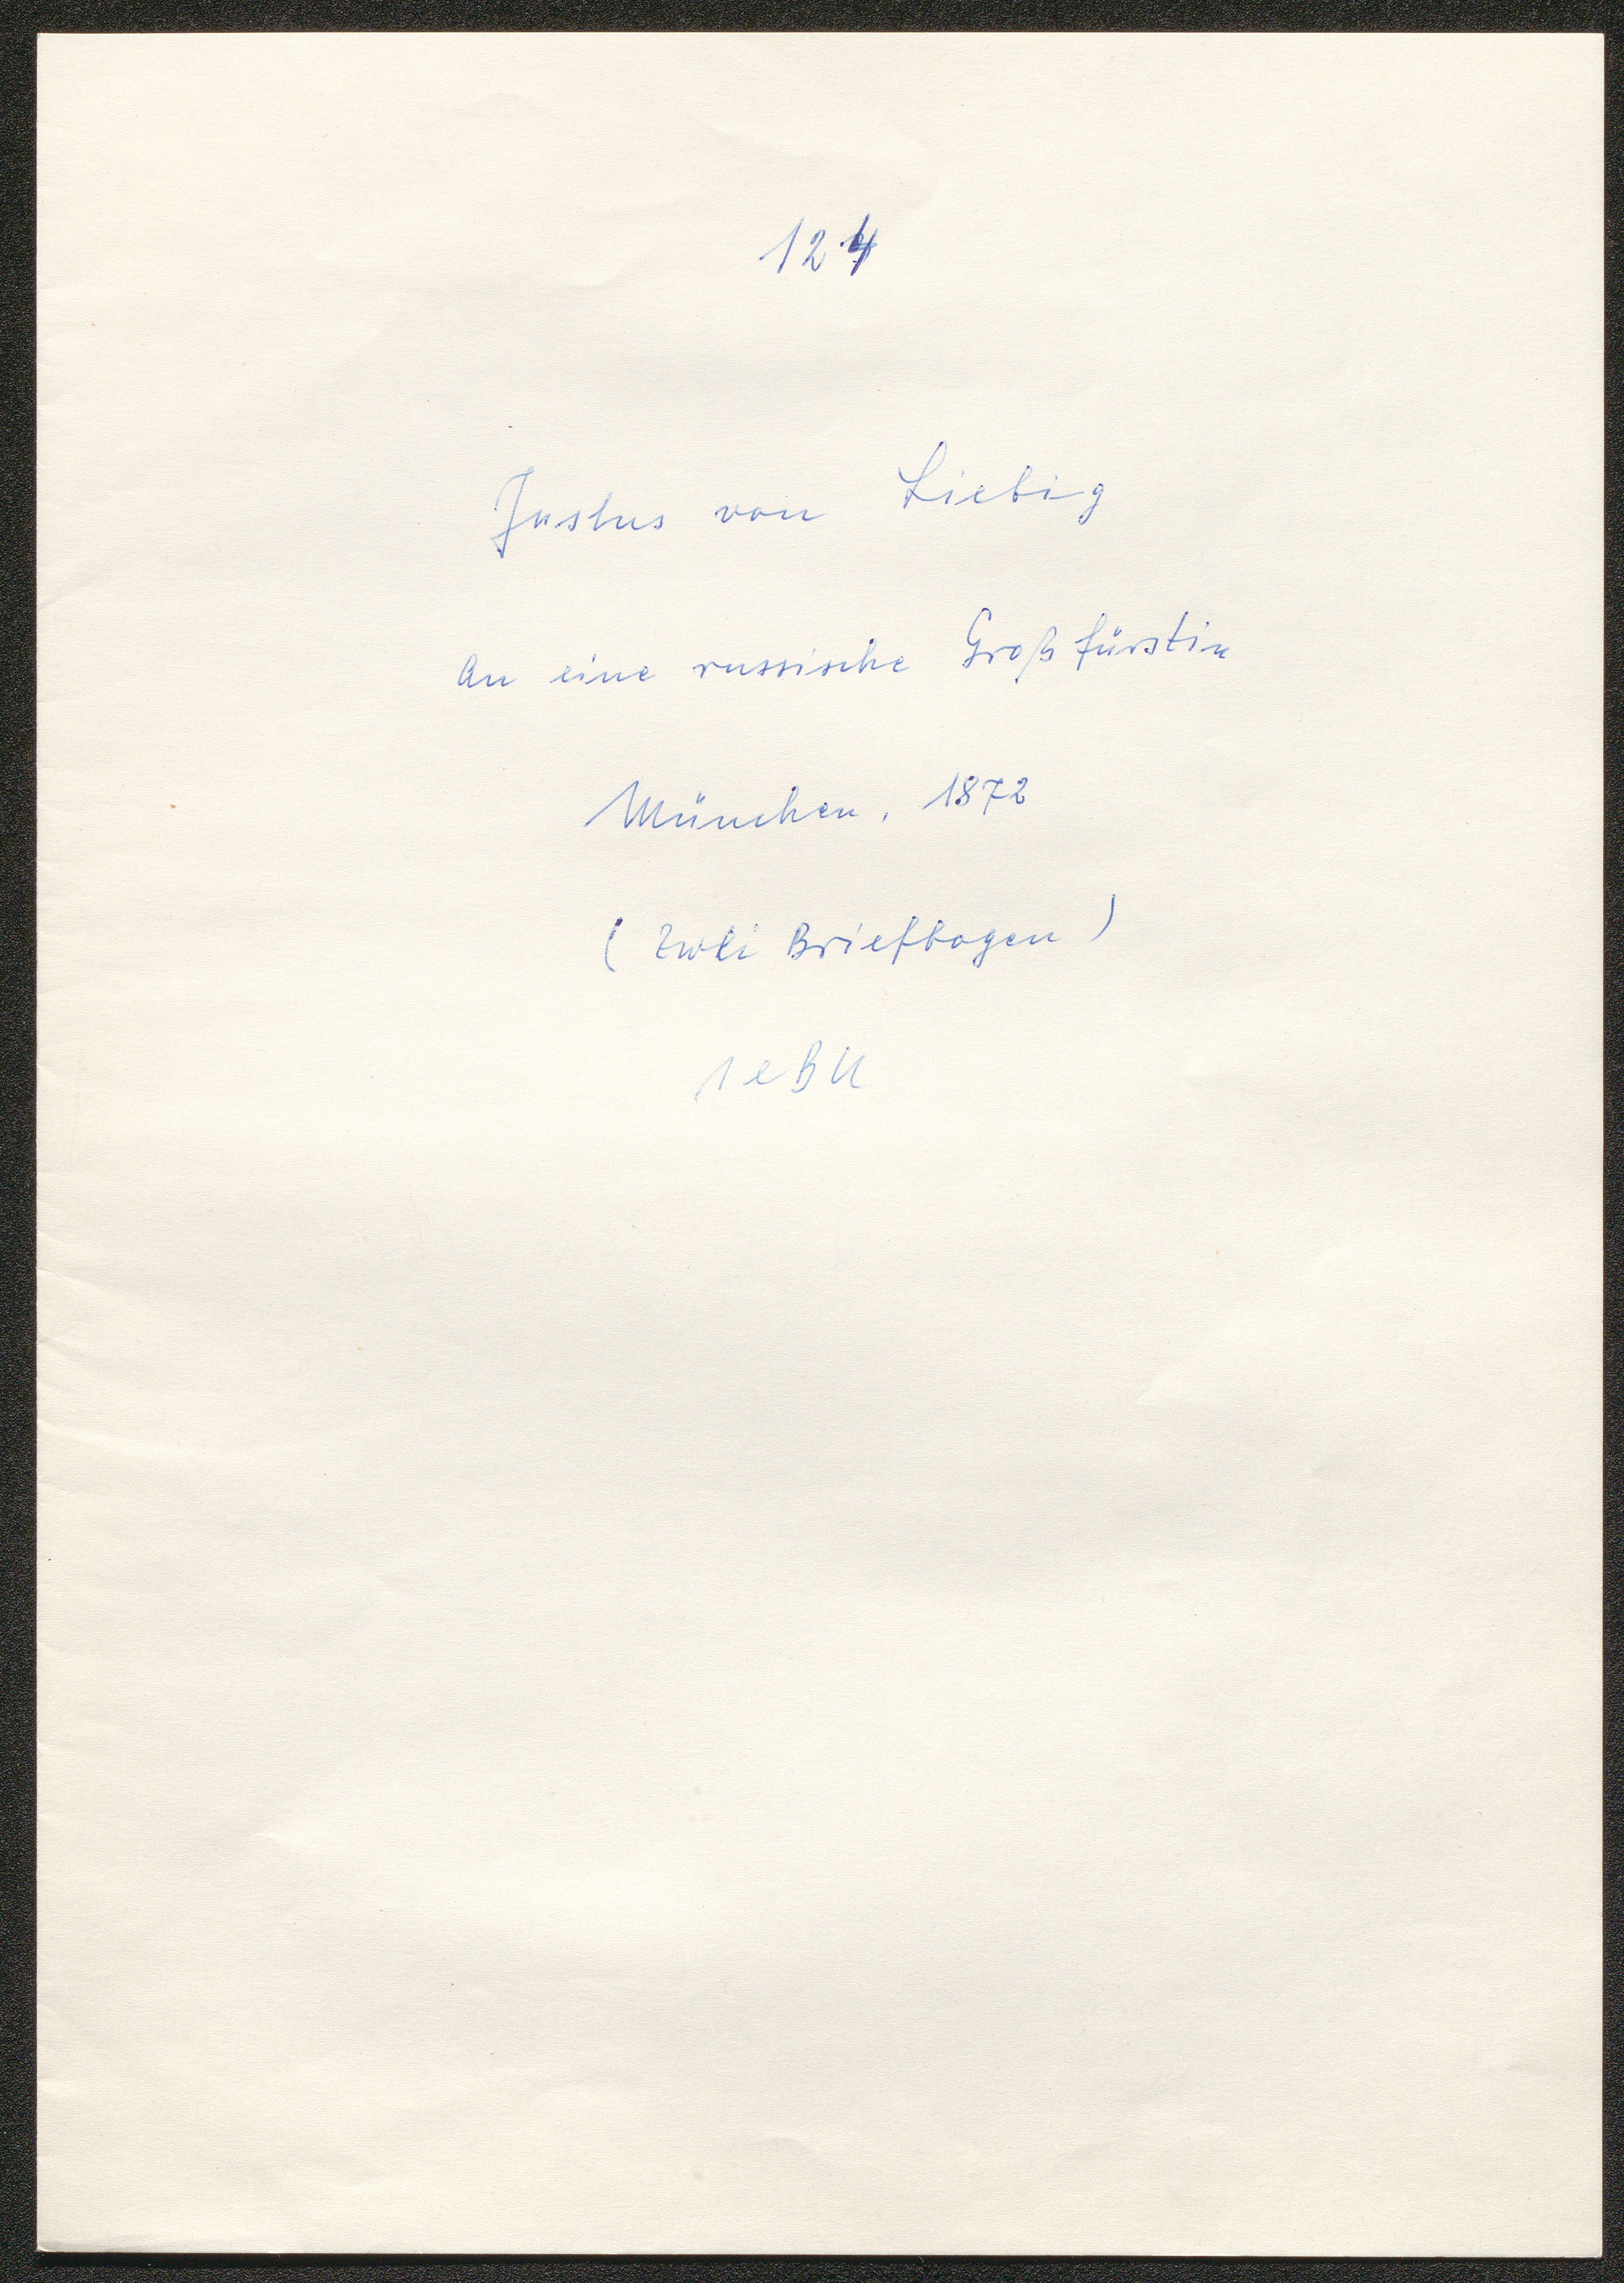 124
Justus von Liebig
An eine russische Großfürstin
München, 1872
(Zwei Briefbogen)